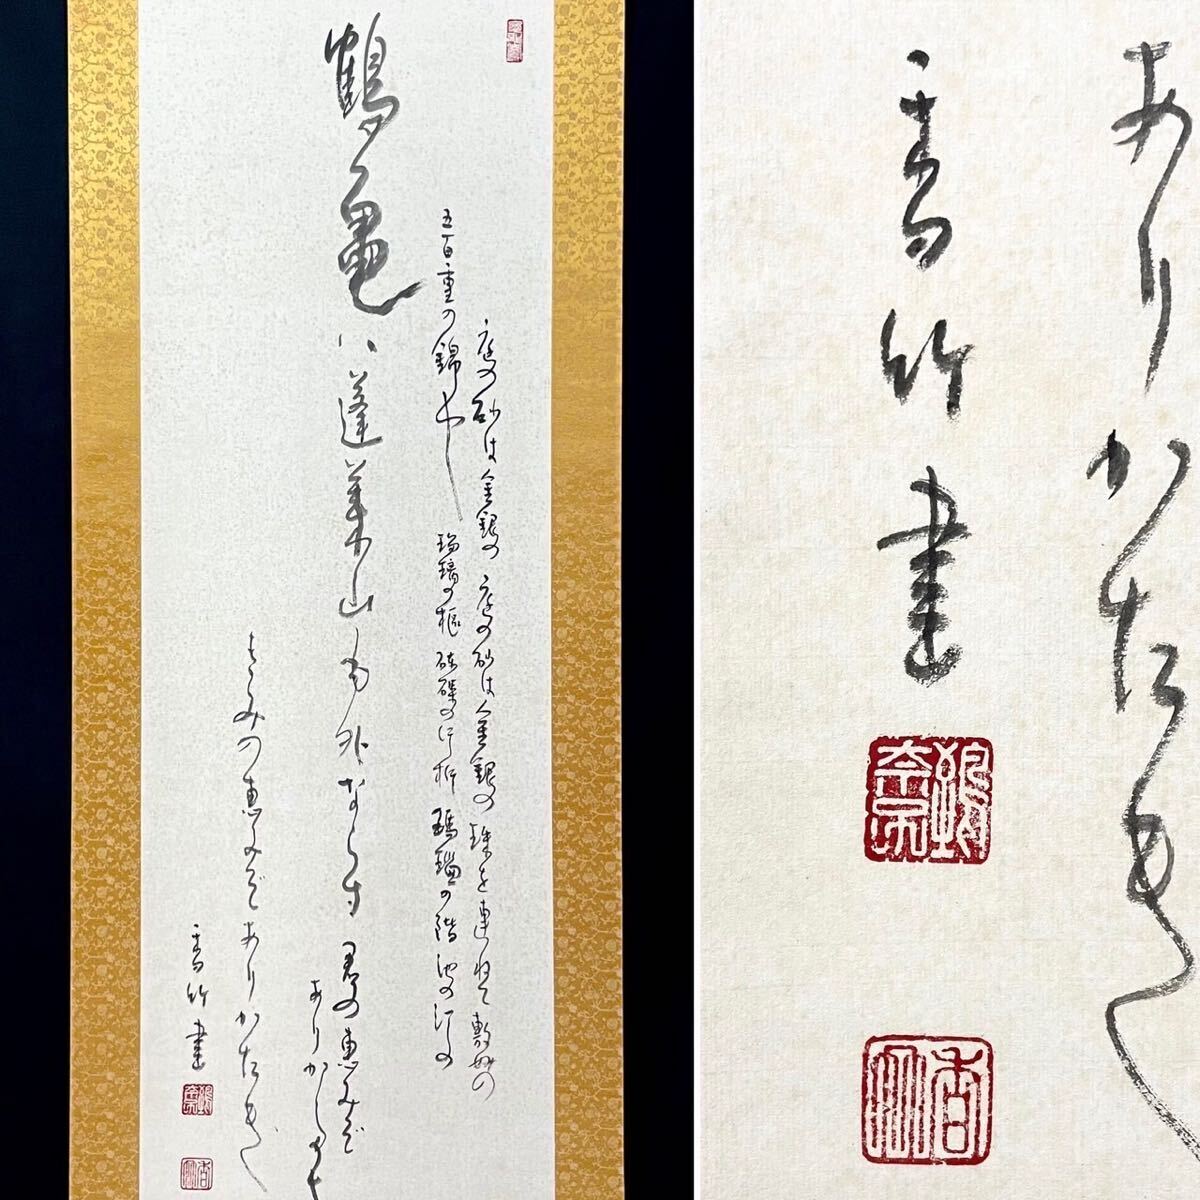 庭の砂は金銀の 庭の砂は金銀の 珠を連ねて敷妙の
五百重の錦や 瑠璃の枢 硨磲の行桁 瑪瑙の階 池の汀の
鶴亀ハ蓬莱山も外ならす 君の恵みぞ
ありかたき
きみの恵みぞ ありかたき
香竹書
ありかたき
香竹書